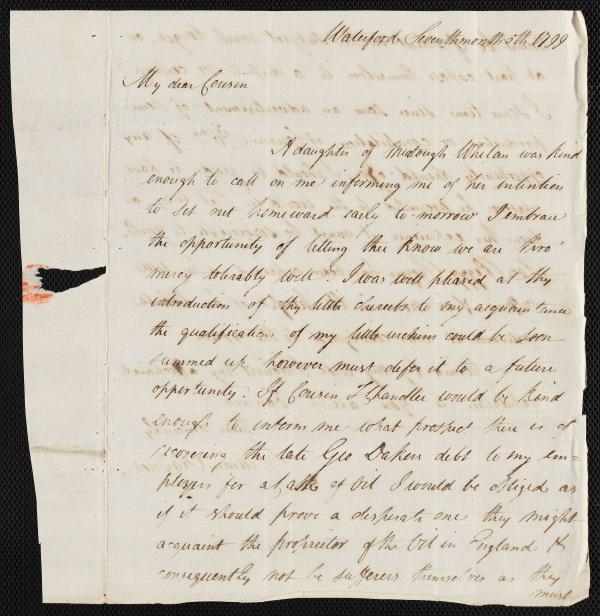 Waterford Seventhmonth 5th 1799
My dear Cousin
A daughter of Whelan was kind
enough to call on me informing me of her intention
to set out homeward early to morrow I embrace
the opportunity of letting thee know we are thro'
mercy tolerably well. I was well pleased at thy
introduction of thy little cherubs to my acquaintance
the qualifications of my little urchins could be soon
summed up however must defer it to a future
opportunity. If Cousin Chandlee would be kind
enough to inform me what prospect there is of
recovering the late Geo Dakers debt to my em=
ployers for a Cask of Oil I would be obliged as
if it should prove a desperate one they might
acquaint the proprietor of the Oil in England &
consequently not be sufferers themselves as they
must